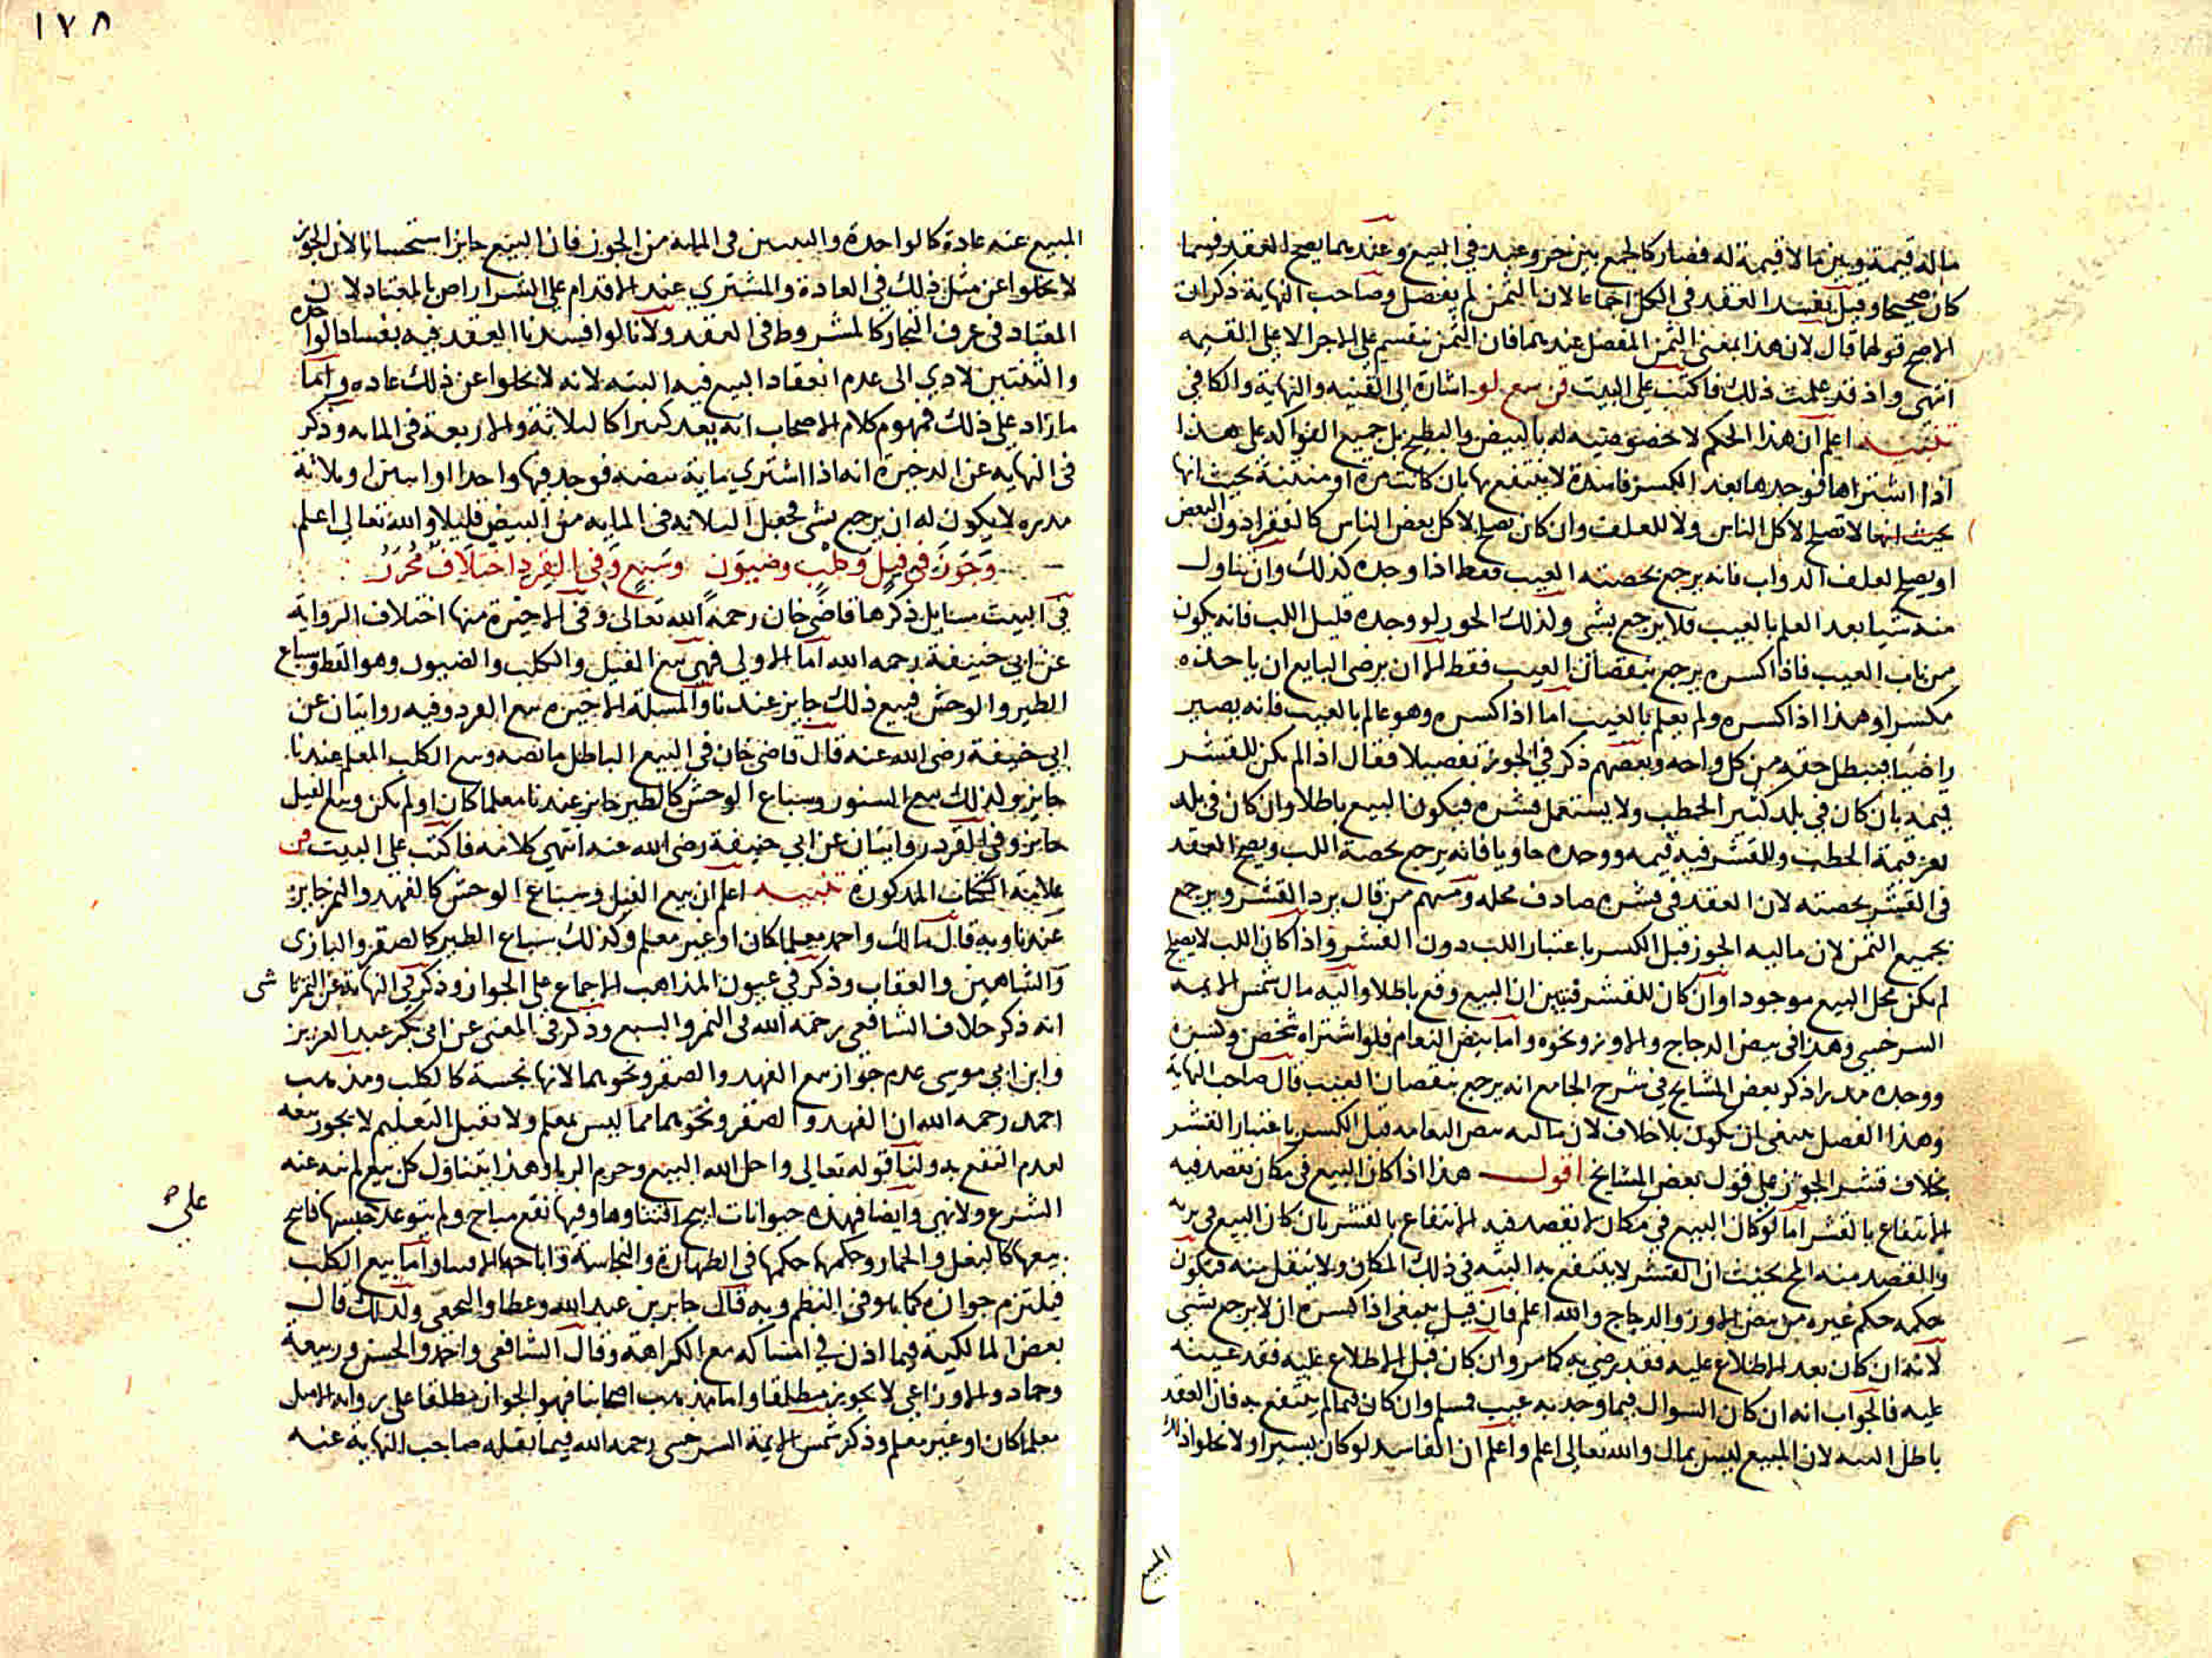 ماله قيمة وبين ما لا قيمة له فصار كالجمع بين حر وعبد في البيع وعندهما يصح العقد فيما
كان صحيحا وقيل يفسد العقد في الكل اجماعا لان الثمن لم يفصل وصاحب النهاية ذكر ان
الاصح قولهما قال لان هذا بمعنى الثمن المفصل عندهما فان الثمن ينقسم على الاجزا لا على القيمه
انتهى واذ قد علمت ذلك فاكتب على البيت قن سع لو اشارة الى القنيه والنهاية والكافي
تنبيه اعلم ان هذا الحكم لا خصوصية له بالبيض والبطيخ بل جميع الفواكه على هذا
اذا اشتراها فوجدها بعد الكسر فاسدة لا ينتفع بها بان كانت مرة او منتنة بحيث انها
بحيث انها لا تصلح لاكل الناس ولا للعلف وان كان يصلح لاكل بعض الناس كالفقرا دون البعض
او يصلح لعلف الدواب فانه يرجع بحصته العيب فقط اذا وجده كذلك وان تناول
منه شيا بعد العلم بالعيب فلا يرجع بشي ولذلك الجوز لو وجده قليل اللب فانه يكون
من باب العيب فاذا كسره يرجع بنقصان العيب فقط الا ان يرضى البايع ان ياخذه
مكسرا وهذا اذا كسره ولم يعلم بالعيب اما اذا كسره وهو عالم بالعيب فانه يصير
راضيا فيبطل حقه من كل واحد وبعضهم ذكر في الجوز تفصيلا فقال اذا لم يكن للقشر
قيمه بان كان في بلد كثير الحطب ولا يستعمل قشره فيكون البيع باطلا وان كان في بلد
يعز قيمة الحطب وللقشر فيه قيمه ووجده خاويا فانه يرجع بحصة اللب ويصح العقد
في القشر بحصته لان العقد في قشره صادف محله ومنهم من قال يرد القشر ويرجع
بجميع الثمن لان ماليه الجوز قبل الكسر باعتبار اللب دون القشر واذا كان اللب لا يصلح
لم يكن محل البيع موجودا وان كان للقشر فتبين ان البيع وقع باطلا واليه مال شمس الايمه
السرخسي وهذا في بيض الدجاج والاوز ونحوه واما بيض النعام فلو اشتراه شخص وكسره
ووجده مدرا ذكر بعض المشايخ في شرح الجامع انه يرجع بنقصان العيب قال صاحب النهاية
وهذا الفصل ينبغي ان يكون بلا خلاف لان ماليه بيض النعامه قبل الكسر باعتبار القشر
بخلاف قشر الجوز على قول بعض المشايخ اقول هذا اذا كان البيع في مكان يقصد فيه
الانتفاع بالقشر اما لو كان البيع في مكان لا يقصد فيه الانتفاع بالقشر بان كان البيع في بريه
والمقصد منه المح بحيث ان القشر لا ينتفع به البته في ذلك المكان ولا ينقل منه فيكون
حكمه حكم غيره من بيض الاوز والدجاج والله اعلم فان قيل ينبغي اذا كسره ان لا يرجع بشي
لانه ان كان بعد الاطلاع عليه فقد رضي به كما مر وان كان قبل الاطلاع عليه فقد عيبه
عليه فالجواب انه ان كان السوال فيما وجد به عيب فمسلم وان كان فيما لم ينتفع به فان العقد
باطل البته لان المبيع ليس بمال والله تعالى اعلم واعلم ان الفاسد لو كان يسيرا ولا يخلو اذ ذلك
المبيع
١٧٨
المبيع عنه عادة كالواحدة والبيضتين في المايه من الجوز فان البيع جايز استحسانا لان الجوز
لا يخلوا عن مثل ذلك في العادة والمشتري عند الاقدام على الشرا راض بالمعتاد لان
المعتاد في عرف التجار كالمشروط في العقد ولانا لو افسدنا العقد فيه بفساد الواحده
والثنتين لادي الى عدم انعقاد البيع فيه البته لانه لا يخلوا عن ذلك عاده واما
ما زاد على ذلك فمفهوم كلام الاصحاب انه يعد كثيرا كالثلاثة والاربعة في المايه وذكر
في النهايه عن الدخيرة انه اذا اشتري ماية بيضه فوجد فيها واحدا او اثنين او ثلاثة
مدره لا يكون له ان يرجع بشي فجعل الثلاثه في المايه من البيض قليلا والله تعالى اعلم
وجوز في فيل وكلب وضيون وسبع وفي القرد اختلاف محرر
في البيت مسايل ذكرها قاضي خان رحمه الله تعالى وفي الاخيرة منها اختلاف الرواية
عن ابي حنيفة رحمه الله اما الاولى فهي بيع الفيل والكلب والضيون وهو القط وسباع
الطير والوحش فبيع ذلك جايز عندنا والمسلة الاخيرة بيع القرد وفيه روايتان عن
ابي حنيفة رضي الله عنه قال قاضي خان في البيع الباطل ما نصه وبيع الكلب المعلم عندنا
جايز ولذلك بيع السنور وسباع الوحش كالطير جايز عندنا معلما كان او لم يكن وبيع الفيل
جايز وفي القرد روايتان عن ابي حنيفة رضي الله عنه انتهي كلامه فاكتب على البيت قن
علامة الكتاب المذكورة تنبيه اعلم ان بيع الفيل وسباع الوحش كالفهد والنمر جايز
عندنا وبه قال مالك واحمد معلما كان او غير معلم وكذلك سباع الطير كالصقر والبازي
والشاهين والعقاب وذكر في عيون المذاهب الاجماع على الجواز وذكر في النهاية عن التمرتاشي
انه ذكر خلاف الشافعي رحمه الله في النمر والسبع وذكر في المغني عن ابي بكر عبد العزيز
وابن ابي موسى عدم جواز بيع الفهد والصقر ونحوهما لانها نجسة كالكلب ومذهب
احمد رحمه الله ان الفهد والصقر ونحوهما مما ليس بمعلم ولا تقبل التعليم لا يجوز بيعه
لعدم النفع به ولنا قوله تعالى واحل الله البيع وحرم الربا وهذا يتناول كل بيع لم ينه عنه
الشرع ولا نهي وايضا فهذه حيوانات ابيح اقتناوها وفيها نفع مباح ولم يتوعد على حبسها فابيح
بيعها كالبغل والحمار وحكمها حكمها في الطهارة والنجاسة واباحه الاقتنا واما بيع الكلب
فيلتزم جوازه كما هو في النظم وبه قال جابر بن عبد الله وعطا والنخعي ولذلك قال
بعض المالكية فيما اذن في امساكه مع الكراهة وقال الشافعي واحمد والحسن وربيعة
وحماد والاوزاعي لا يجوز مطلقا واما مذهب اصحابنا فهو الجواز مطلقا على رواية الاصل
معلما كان او غير معلم وذكر شمس الايمة السرخسي رحمه الله فيما نقله صاحب النهاية عنه